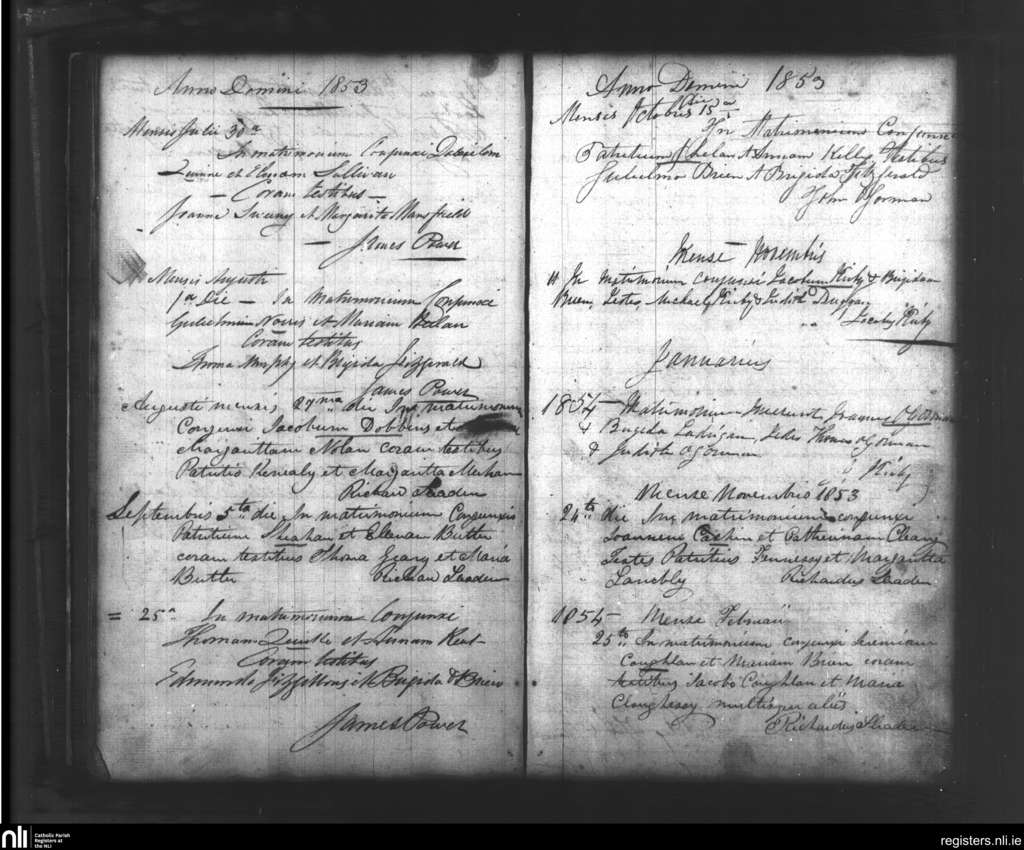 Anno Domini 1853
Mensis Julii 30a
In matrimonium Conjunxi
Quinn et Elenam Sullivan
— Coram testibus —
Joanne et Margarita Mansfield
— James Power
Mensis Augusti
1a Die — In Matrimonium Conjunxi
Gulielmum Norris et Mariam Phelan
Coram testibus
Thoma Murphy et Brigida Fitzgerald
James Power
Augusti mensis 27ma die In matrimonium
Conjunxi Jacobum Dobbins et
Margarittam Nolan coram testibus
Patritio Kenealy et Margaritta Meehan
Richard
Septembris 5ta die In matrimonium Conjunxi
Patritium Sheahan et Elenam Butler
coram testibus Thoma Egan et Maria
Butler Richard
= 25a In matrimonium Conjunxi
Thomam et Annam Kent
Coram testibus
Edmundo Fitzgibbons et Brigida
James Power
Anno Domini 1853
Mensis Octobris die 15a
In Matrimonium Conjunxi
Patritium Phelan & Annam Kelly Testibus
Gulielmo Brien & Brigida Fitzgerald
John O'Gorman
Mense Novembris
In matrimonium conjunxi Jacobum Kirby & Brigidam
Brien, Testes, Michael Kirby & Judith
Kirby
Januarius
1854 — Matrimonium Joannes O'Gorman
& Brigida Testes Thomas O'Gorman
& Judith O'Gorman
Kirby
Mense Novembris 1853
24ta die In matrimonium conjunxi
Joannem et Catherinam
Testes Patritius Fennessy et Margaritta
Richardus
1854 — Mense Februarii
25ta In matrimonium conjunxi
Coughlan et Mariam Brien coram
testibus Jacobo Coughlan et Maria
multisque aliis
Richardus
nli
Catholic Parish
Registers at
the NLI
registers.nli.ie